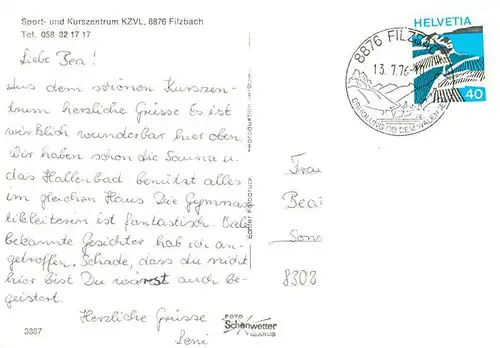 Sport- und Kurszentrum KZVL, 8876 Filzbach
Tel. 058 32 17 17
Liebe Bea!
Aus dem schönen Kurszen-
trum herzliche Grüsse Es ist
wirklich wunderbar hier oben.
Wir haben schon die Sauna u.
das Hallenbad benützt alles
im gleichen Haus Die Gymnas-
tikleiterin ist fantastisch. Viele
bekannte Gesichter hab ich an-
getroffen. Schade, dass du nicht
hier bist Du wärest auch be-
geistert.
Herzliche Grüsse
3887
FOTO
Schönwetter
GLARUS
8876 FILZBACH
13.7.76
ERHOLUNG OB DEM WALENSEE
HELVETIA
40
Frau
Bea
8302